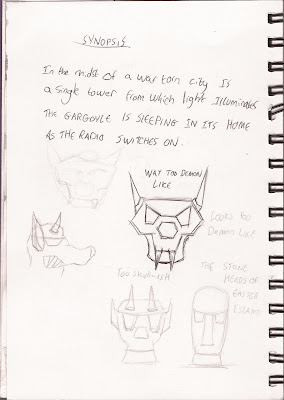 SYNOPSIS
In the midst of a war torn city Is
a single tower from which light Illuminates
THE GARGOYLE IS SLEEPING IN ITS HOME
AS THE RADIO SWITCHES ON.
WAY TOO DEMON
LIKE
Looks too
Demon Like
Too Skull-ish
THE STONE
HEADS OF
EASTER
ISLAND